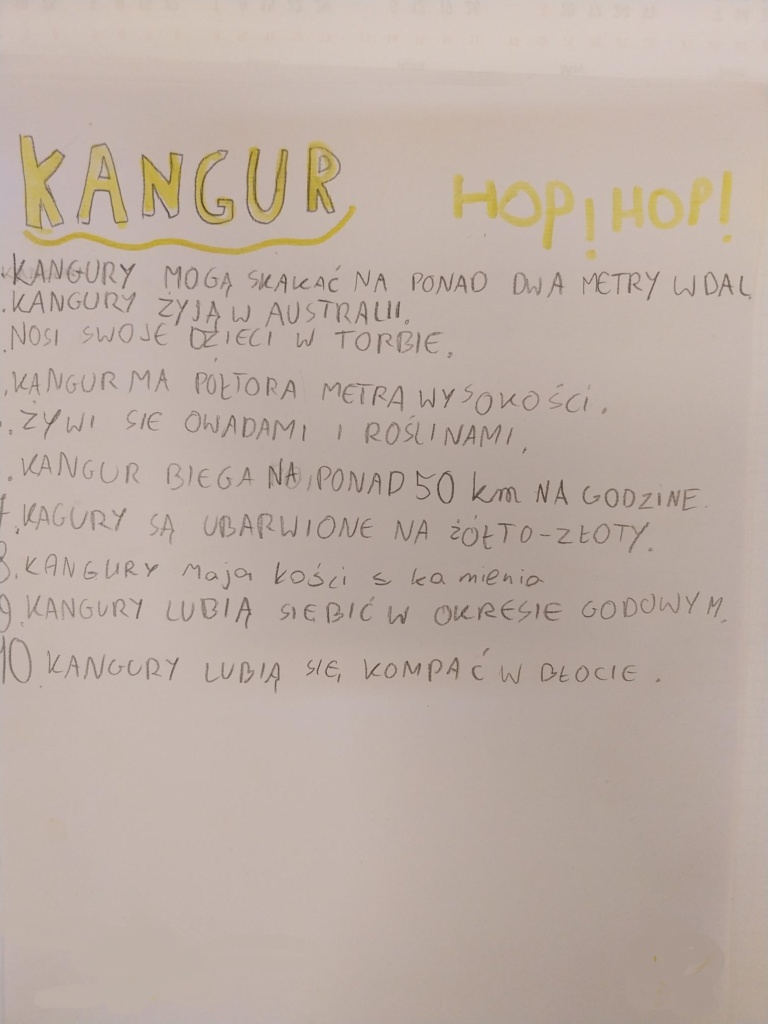 KANGUR
HOP! HOP!
.KANGURY MOGĄ SKAKAĆ NA PONAD DWA METRY W DAL
.KANGURY ŻYJĄ W AUSTRALII.
.NOSI SWOJE DZIECI W TORBIE.
.KANGUR MA PÓŁTORA METRA WYSOKOŚCI.
.ŻYWI SIE OWADAMI I ROŚLINAMI.
.KANGUR BIEGA NA PONAD 50 km NA GODZINE.
7.KAGURY SĄ UBARWIONE NA ŻÓŁTO-ZŁOTY.
8.KANGURY Maja kości s ka mienia
9.KANGURY LUBIĄ SIEBIĆ W OKRESIE GODOWYM.
10.KANGURY LUBIĄ SIĘ KOMPAĆ W BŁOCIE.